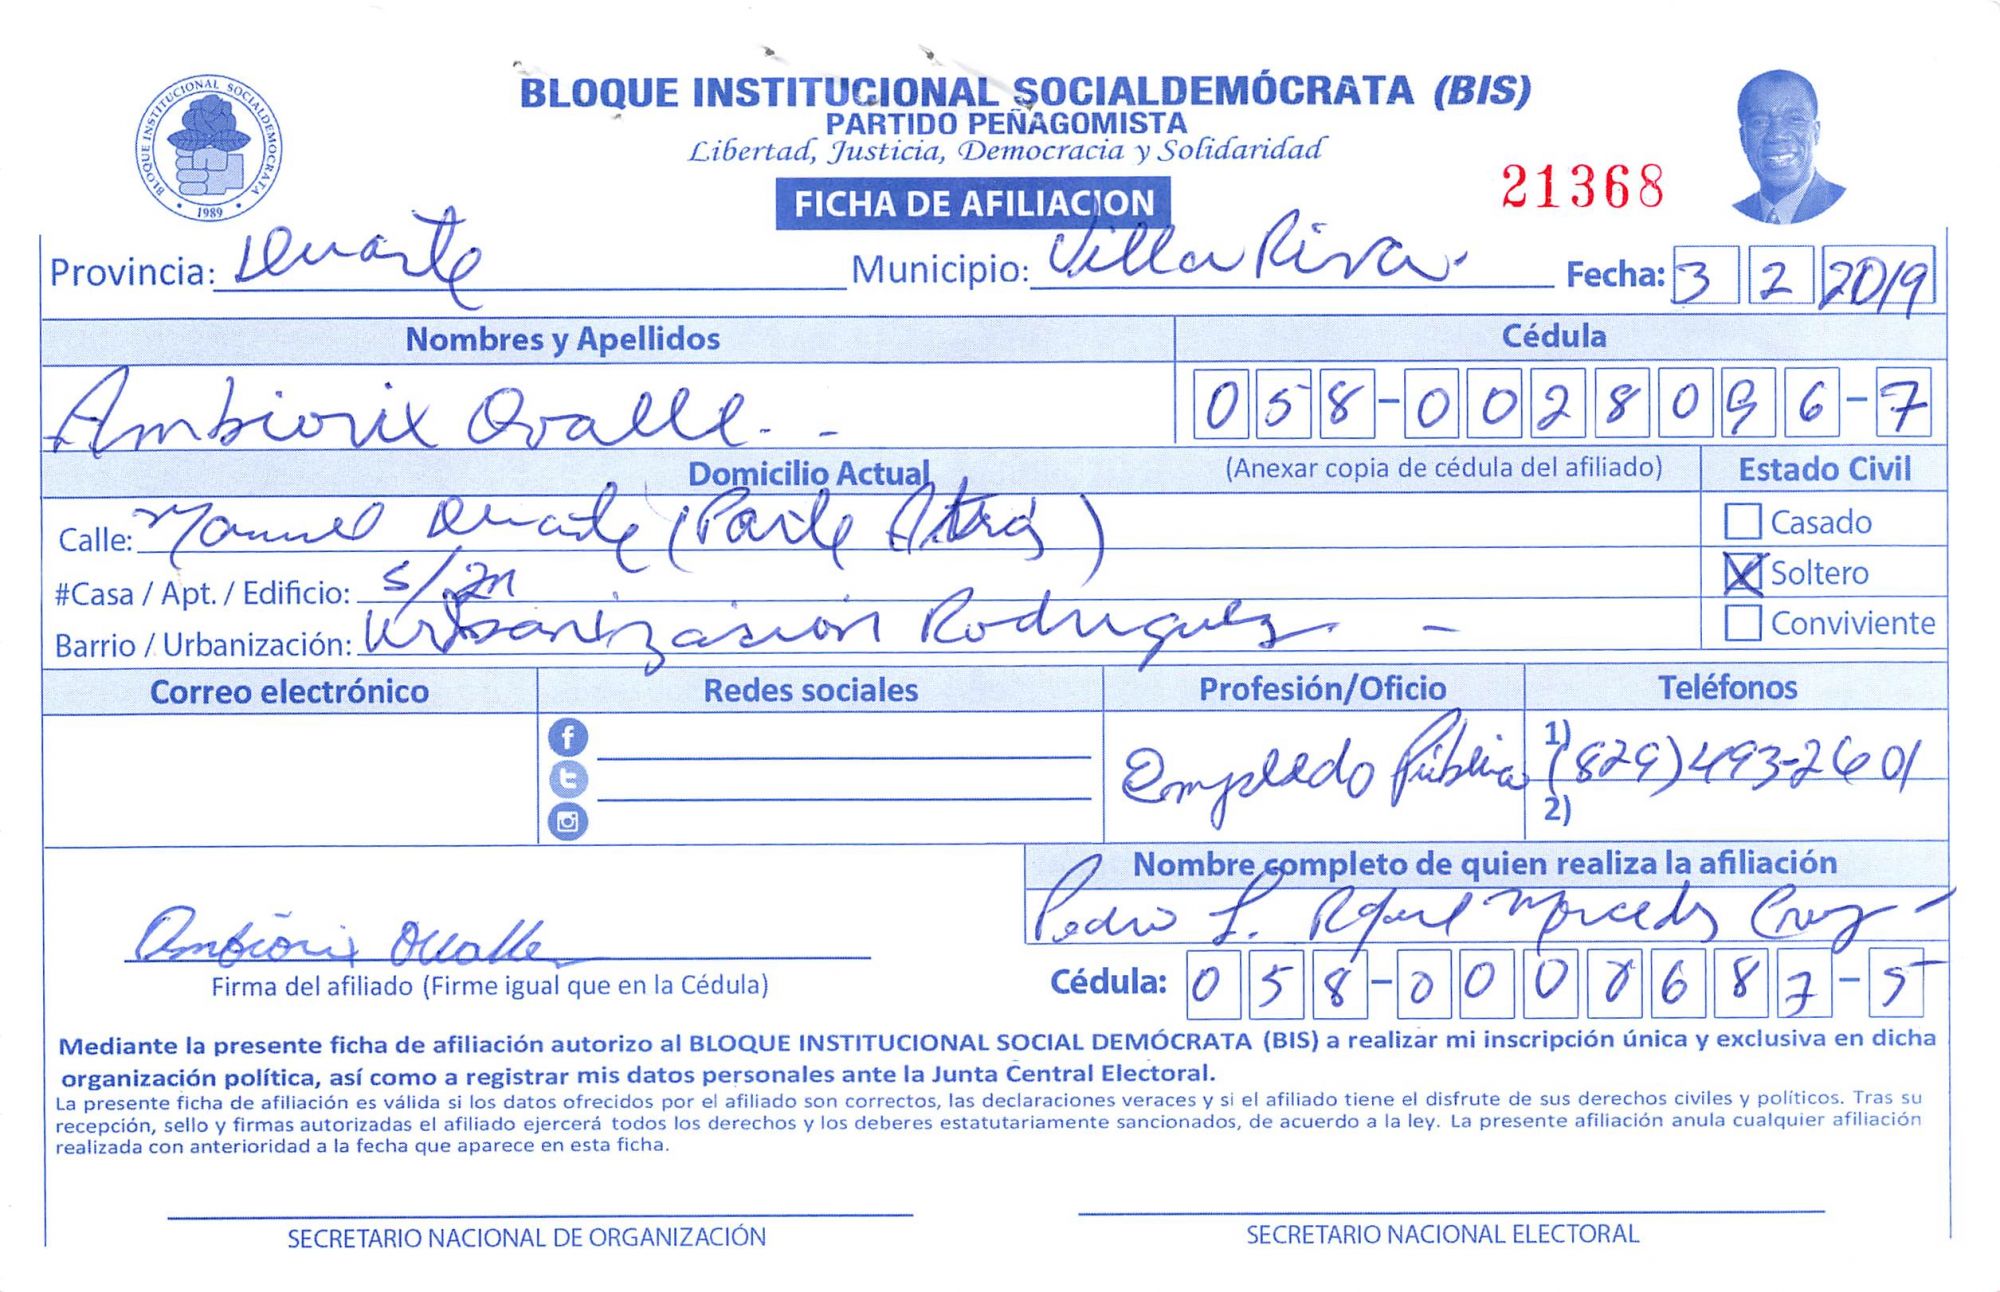 BLOQUE INSTITUCIONAL SOCIALDEMOCRATA
1989
BLOQUE INSTITUCIONAL SOCIALDEMÓCRATA (BIS)
PARTIDO PEÑAGOMISTA
Libertad, Justicia, Democracia y Solidaridad
FICHA DE AFILIACION
21368
Provincia: Duarte Municipio: Villa Riva. Fecha: 3 2 2019
Nombres y Apellidos Cédula
Ambiorix Ovalle. - 058-0028096-7
Domicilio Actual (Anexar copia de cédula del afiliado) Estado Civil
Calle: Manuel Duarte (Parte Atrás) Casado
#Casa / Apt. / Edificio: s/n Soltero
Barrio / Urbanización: Urbanización Rodriguez. - Conviviente
Correo electrónico Redes sociales Profesión/Oficio Teléfonos
Empleado Público 1) (829)493-2601
2)
Nombre completo de quien realiza la afiliación
Pedro Rafael Mercedes Cruz -
Ambiorix Ovalle
Firma del afiliado (Firme igual que en la Cédula) Cédula: 058-0000687-5
Mediante la presente ficha de afiliación autorizo al BLOQUE INSTITUCIONAL SOCIAL DEMÓCRATA (BIS) a realizar mi inscripción única y exclusiva en dicha
organización política, así como a registrar mis datos personales ante la Junta Central Electoral.
La presente ficha de afiliación es válida si los datos ofrecidos por el afiliado son correctos, las declaraciones veraces y si el afiliado tiene el disfrute de sus derechos civiles y políticos. Tras su
recepción, sello y firmas autorizadas el afiliado ejercerá todos los derechos y los deberes estatutariamente sancionados, de acuerdo a la ley. La presente afiliación anula cualquier afiliación
realizada con anterioridad a la fecha que aparece en esta ficha.
SECRETARIO NACIONAL DE ORGANIZACIÓN SECRETARIO NACIONAL ELECTORAL